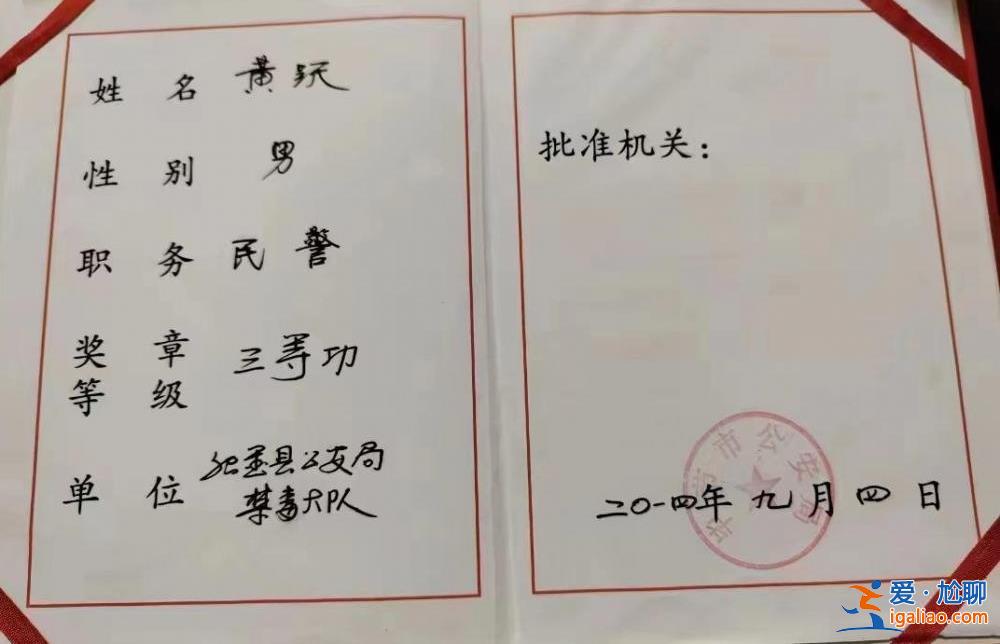 姓 名 黄跃
性 别 男
职 务 民警
奖 章
等 级 三等功
单 位 纳雍县公安局
禁毒大队
批准机关：
毕节市公安局
二〇一四年九月四日
爱·尬聊
igaliao.com